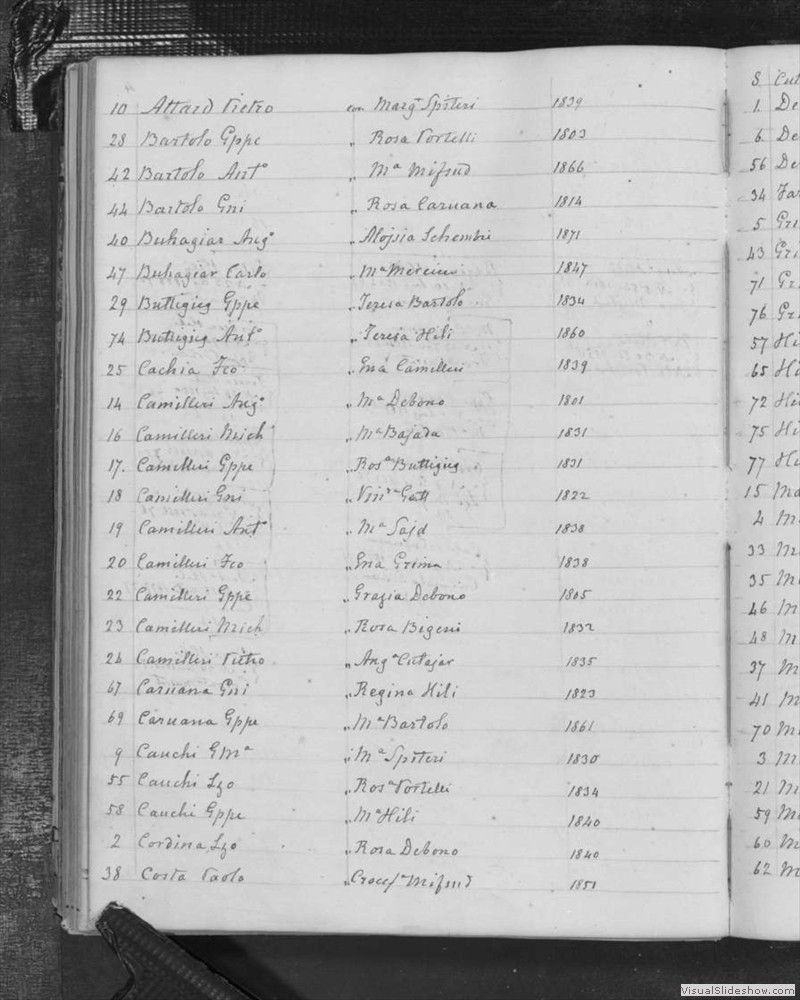 10 Attard Pietro con Margta Spiteri 1839
28 Bartolo Gppe „ Rosa Portelli 1803
42 Bartolo Anto „ Ma Mifsud 1866
44 Bartolo Gni „ Rosa Caruana 1814
40 Buhagiar Ango „ Alojsia Schembri 1871
47 Buhagiar Carlo „ Ma Mercieca 1847
29 Buttigieg Gppe „ Teresa Bartolo 1834
74 Buttigieg Anto „ Teresa Hili 1860
25 Cachia Fco „ Ena Camilleri 1839
14 Camilleri Ango „ Ma Debono 1801
16 Camilleri Mich „ Ma Bajada 1831
17. Camilleri Gppe „ Rosa Buttigieg 1831
18 Camilleri Gni „ Gatt 1822
19 Camilleri Anto „ Ma Sajd 1838
20 Camilleri Fco „ Ena Grima 1838
22 Camilleri Gppe „ Grazia Debono 1805
23 Camilleri Mich „ Rosa Bigeni 1832
24 Camilleri Pietro „ Anga Cutajar 1835
67 Caruana Gni „ Regina Hili 1823
69 Caruana Gppe „ Ma Bartolo 1861
9 Cauchi GMa „ Ma Spiteri 1830
55 Cauchi Lzo „ Rosa Portelli 1834
58 Cauchi Gppe „ Ma Hili 1840
2 Cordina Lzo „ Rosa Debono 1840
38 Costa Paolo „ Crocefa Mifsud 1851
8. Cut
1. De
6. De
56 De
34 Far
5 Gri
43 Gri
71 Gr
76 Gr
57 Hi
65 Hi
72 Hi
75 Hi
77 Hi
15 Ma
4 M
33 M
35 M
46 M
48 M
37 M
41 M
70 M
3 M
21 M
59 M
60 M
62 M
VisualSlideshow.com